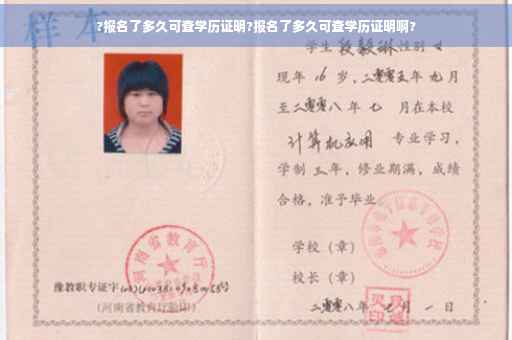 ?报名了多久可查学历证明?报名了多久可查学历证明啊?
样本
学生 段毅琳 性别 女
现年 16 岁,二零零五年 九 月
至二零零八 年 七 月在本校
计算机应用 专业学习,
学制 三 年,修业期满,成绩
合格,准予毕业
学校(章)
校长(章)
二零零八年 七 月 一 日
河南省教育厅
豫教职专证字
(河南省教育厅验印)